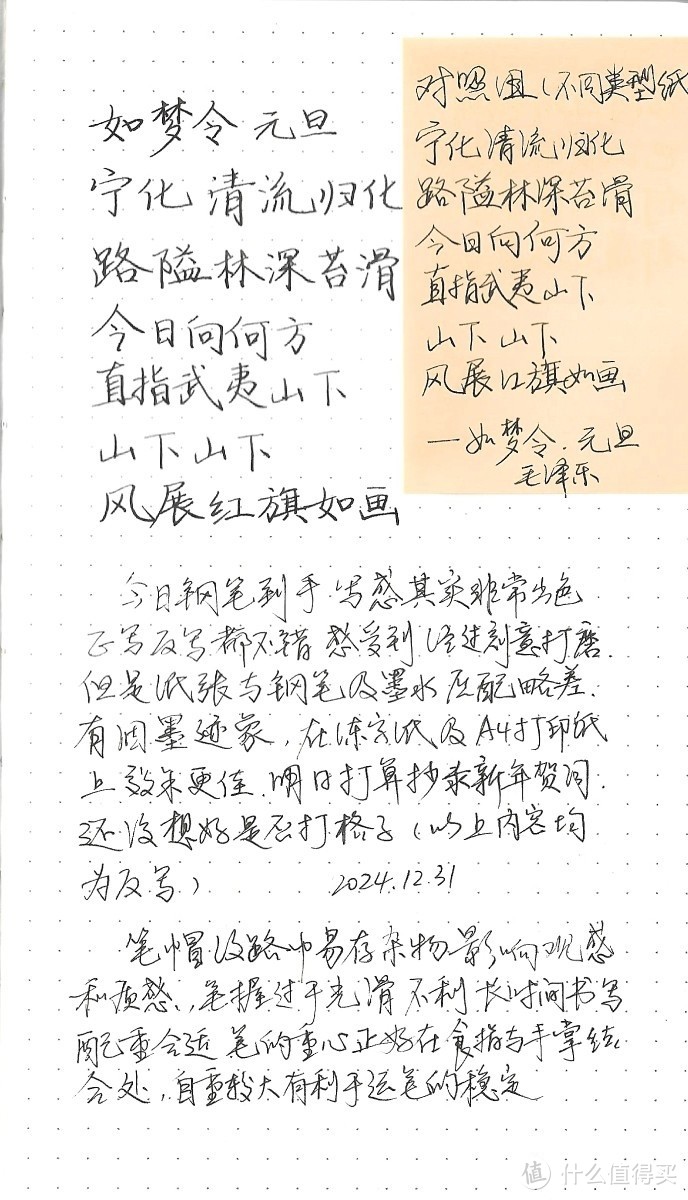 如梦令 元旦
宁化 清流归化
路隘林深苔滑
今日向何方
直指武夷山下
山下山下
风展红旗如画
对照组(不同类型纸
宁化清流归化
路隘林深苔滑
今日向何方
直指武夷山下
山下山下
风展红旗如画
—如梦令.元旦
毛泽东
今日钢笔到手 写感其实非常出色
正写反写都不错 感受到 经过刻意打磨.
但是纸张与钢笔及墨水匹配略差.
有洇墨迹象,在练字纸及A4打印纸
上效果更佳.明日打算抄录新年贺词.
还没想好是否打格子(以上内容均
为反写) 2024.12.31
笔帽纹路中易存杂物影响观感
和质感.,笔握过于光滑不利长时间书写
配重合适 笔的重心正好在食指与手掌结
合处,自重较大有利于运笔的稳定
值 什么值得买